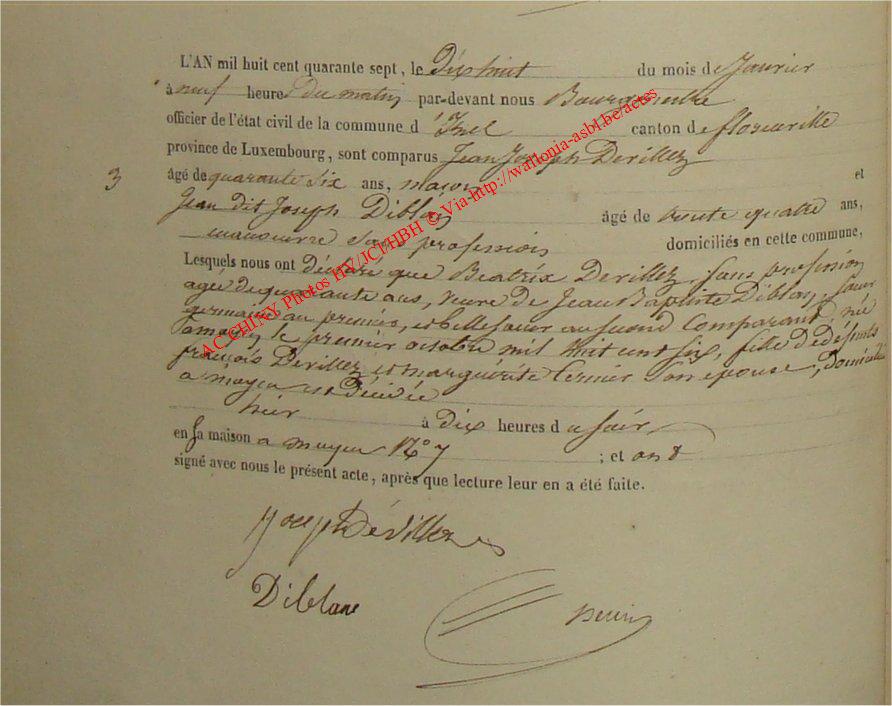 L'AN mil huit cent quarante sept, le Dix huit du mois de Janvier
à neuf heures du matin par-devant nous Bourgmestre
officier de l'état civil de la commune d'Izel canton de florenville
province de Luxembourg, sont comparus Jean Joseph Devillez
3 âgé de quarante six ans, maçon et
Jean dit Joseph Diblan âgé de trente quatre ans,
manœuvre sans profession domiciliés en cette commune,
Lesquels nous ont Déclaré que Beatrix Devillez, sans profession
agée de quarante ans, veuve de Jean Baptiste Diblan, sœur
germaine au premier, et belle sœur au second Comparant, née
a moyen, le premier octobre mil huit cent six, fille de défunts
françois Devillez et marguérite son epouse, Domiciliée
a moyen est décédée
hier à dix heures du soir
en sa maison a moyen N° 7 ; et ont
signé avec nous le présent acte, après que lecture leur en a été faite.
Joseph Dévillez
Diblane
AC CHINY Photos HV/JCI/HBH © Via http://wallonia-asbl.be/actes